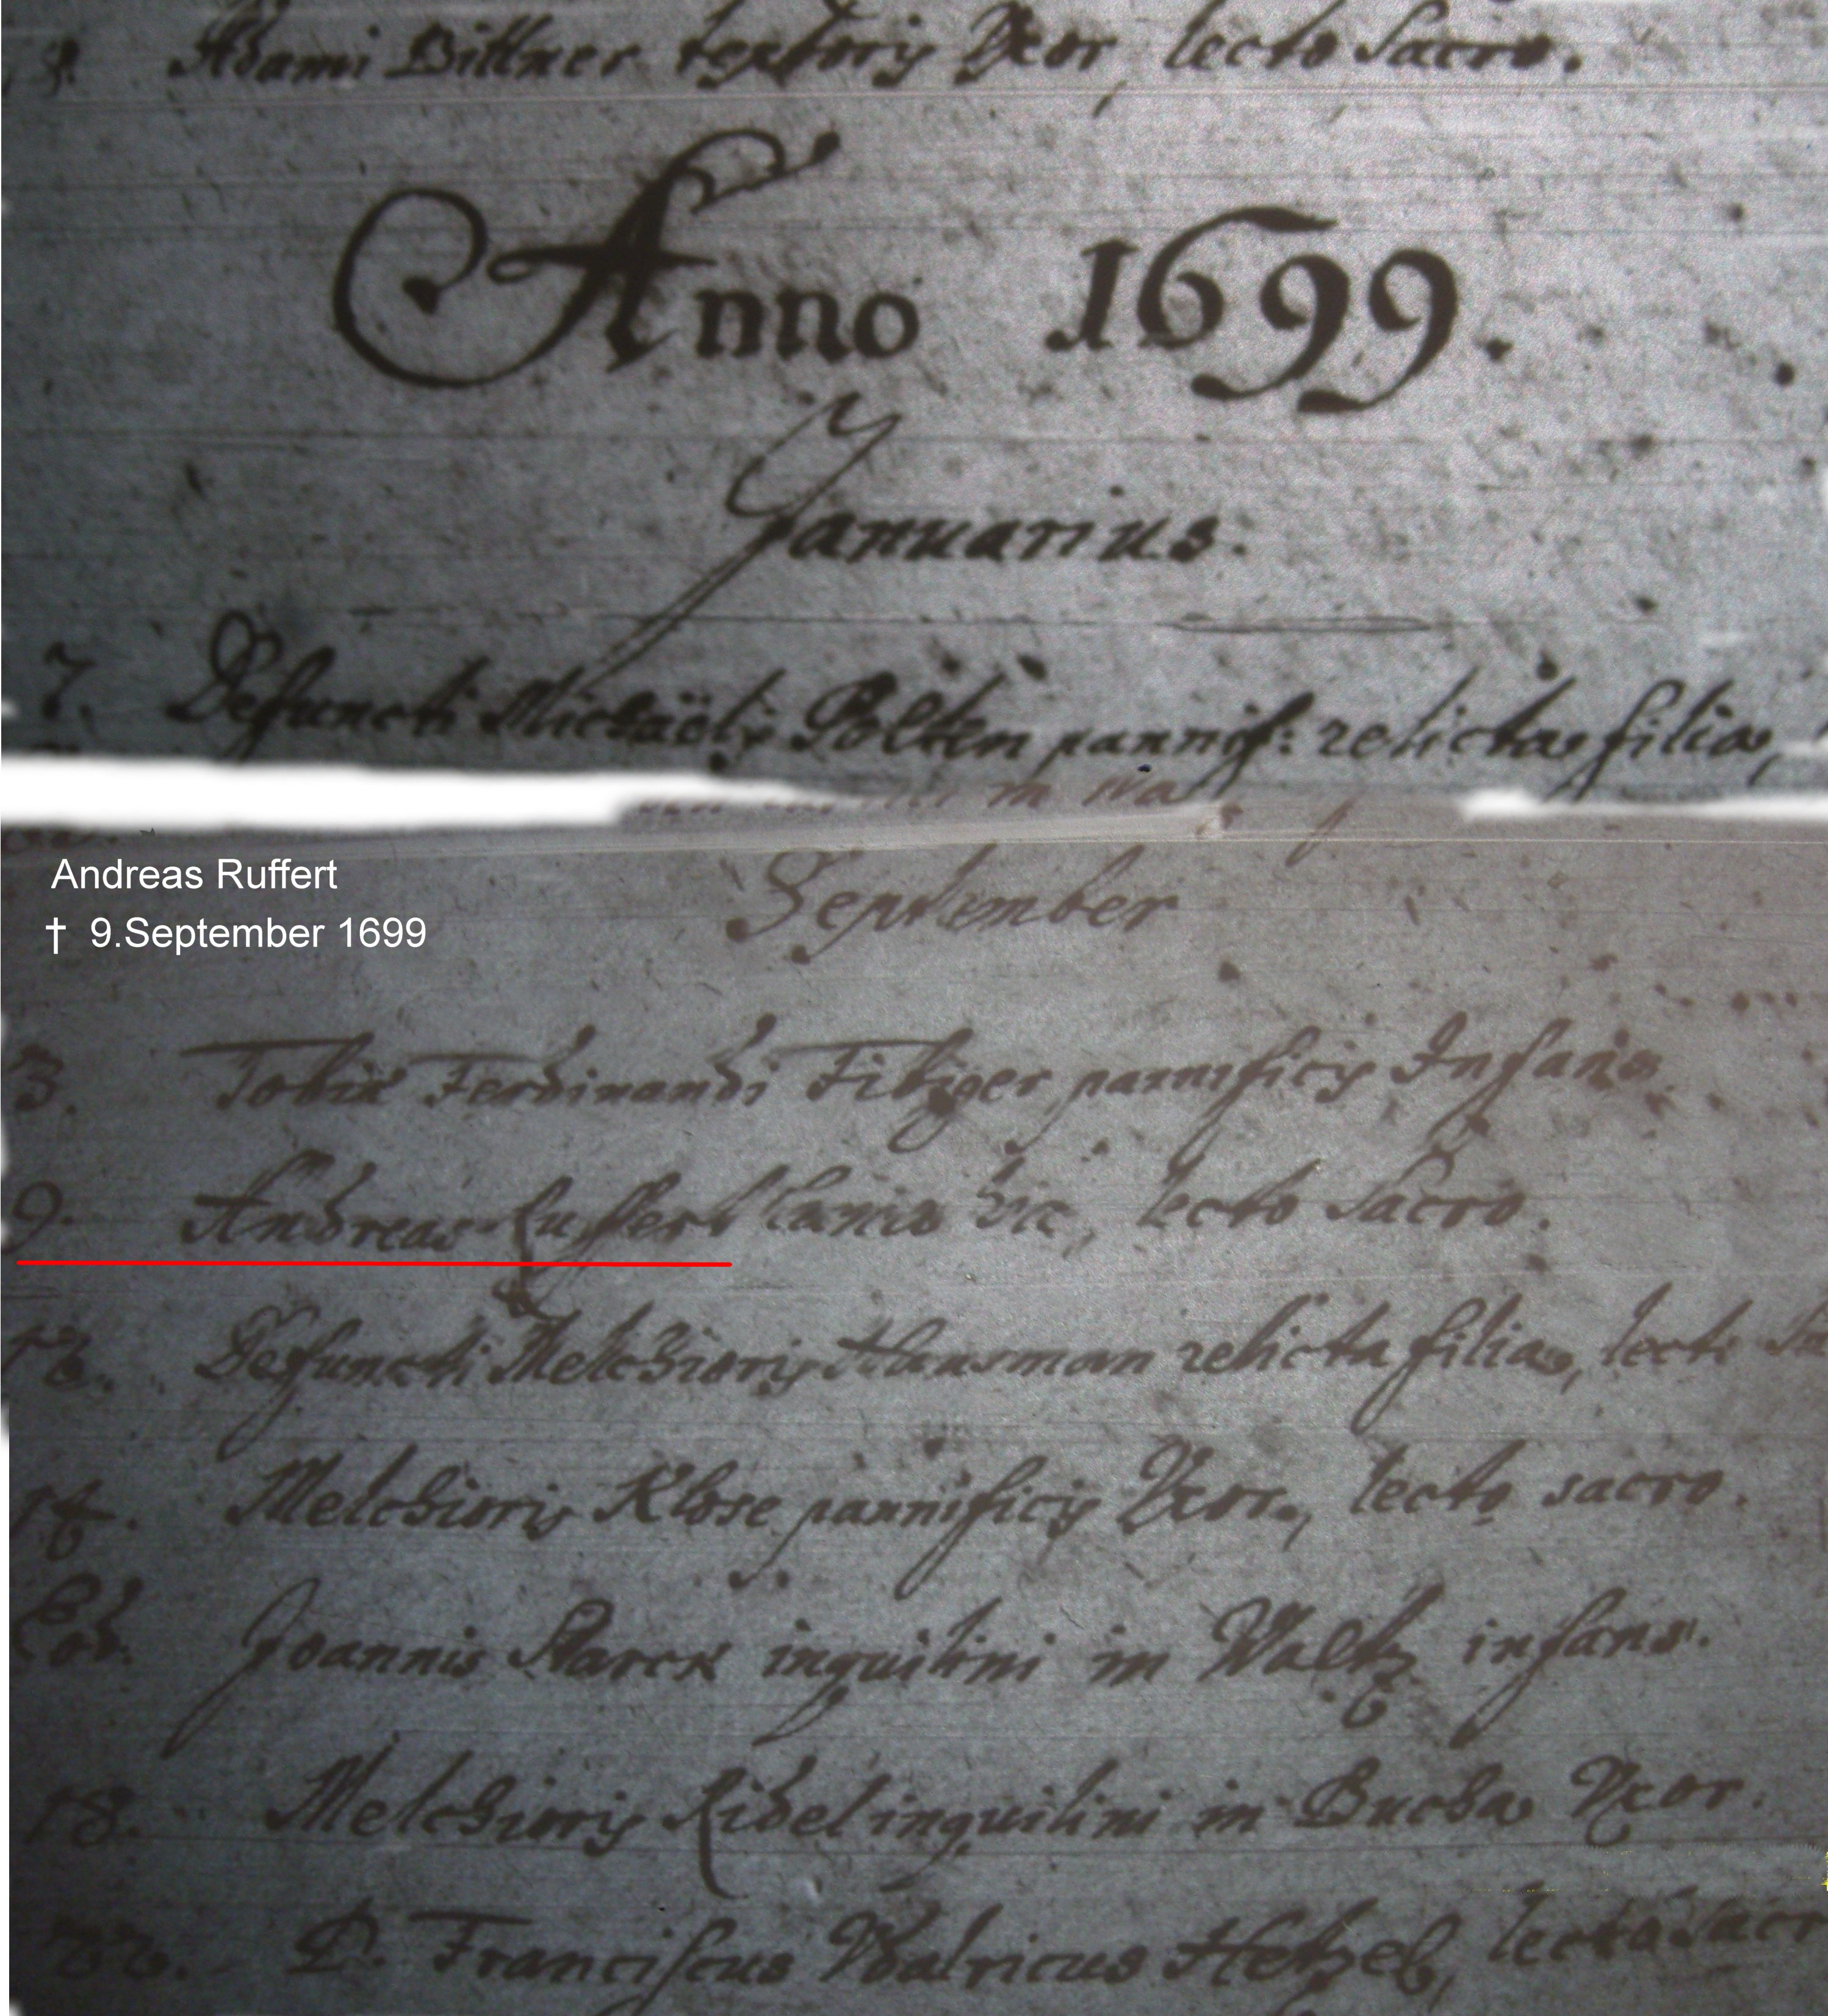 9. Adami Bittner textoris Uxor, lecto Sacro.
Anno 1699.
Januarius.
7. Defuncti Michaëlis Polten pannif: relicta filia,
Andreas Ruffert
† 9.September 1699
September
3. Tobiæ Ferdinandi Fibiger pannificis Infans
9. Andreas Ruffert Lanio hic, lecto Sacro.
Defuncti Melchioris Hausman relicta filia, lecto
14. Melchioris Klose pannificis Uxor, lecto sacro.
Eod. Joannis Starck inquilini in Waltz infans.
18. Melchioris Ridel inquilini in Bucha Uxor.
22. P. Franciscus Udalricus Hetzel, lecto sacr